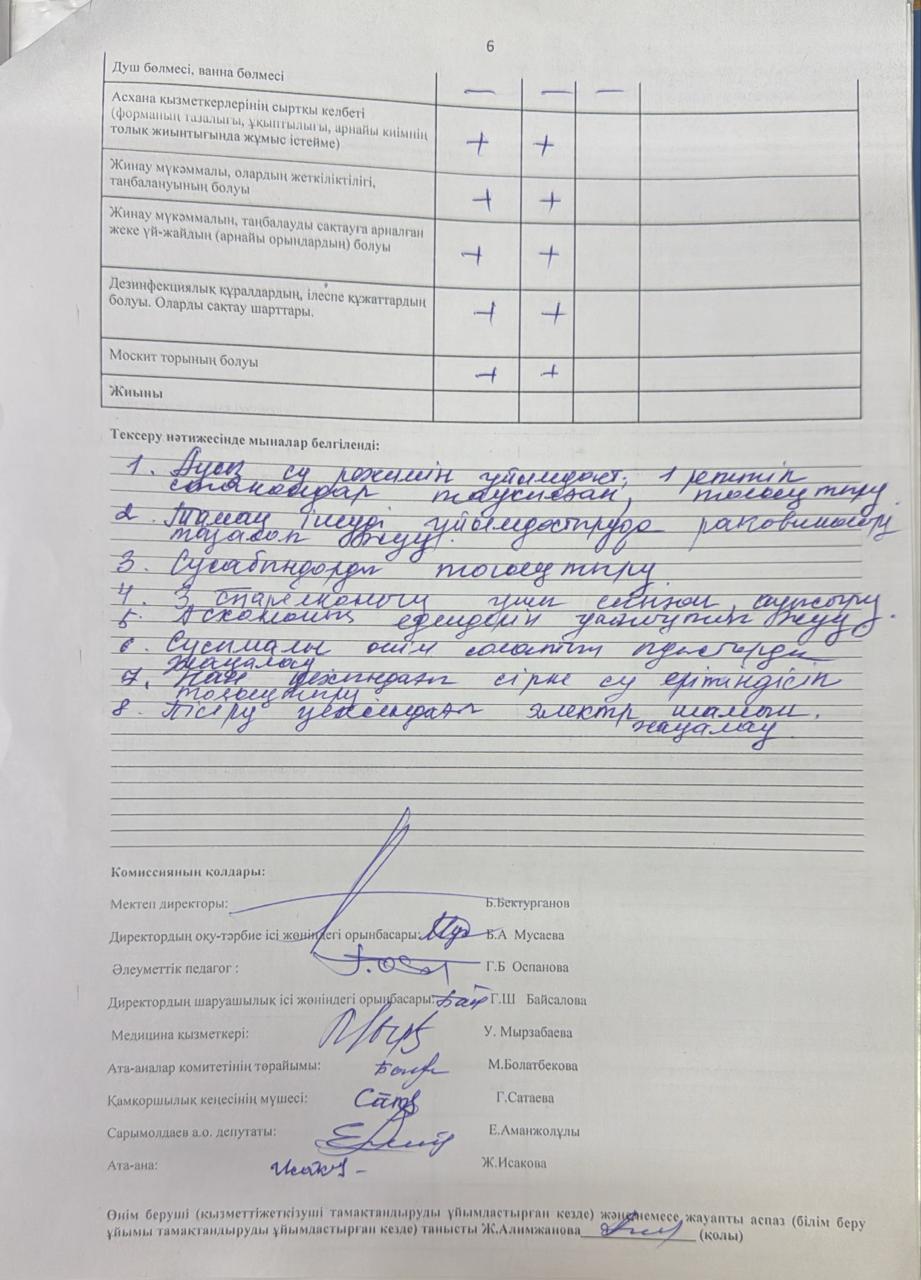 6
Душ бөлмесі, ванна бөлмесі — — —
Асхана қызметкерлерінің сыртқы келбеті
(форманың тазалығы, ұқыптылығы, арнайы киімнің
толық жиынтығында жұмыс істейме) + +
Жинау мүкәммалы, олардың жеткіліктілігі,
таңбалануының болуы + +
Жинау мүкәммалын, таңбалауды сақтауға арналған
жеке үй-жайдың (арнайы орындардың) болуы + +
Дезинфекциялық құралдардың, ілеспе құжаттардың
болуы. Оларды сақтау шарттары. + +
Москит торының болуы + +
Жиыны
Тексеру нәтижесінде мыналар белгіленді:
1. Ауыз су режимін ұйымдаст. 1 реттік
стакандар таусылған, толықтыру.
2. Тамақ ішуді ұйымдастыруда раковиналарды
тазалап жуу.
3. Сусабындарды толықтыру.
4. 3 тарелканың ауыстыру
5. Асхананың едендерін жуу.
6. Сусымалы өнім салатын ыдыстарды
жаңалау
7. Нан сірке су ерітіндісін
толықтыру
8. Пісіру цехындағы электр шамын.
жаңалау
Комиссияның қолдары:
Мектеп директоры: Б.Бектурганов
Директордың оқу-тәрбие ісі жөніндегі орынбасары: Б.А Мусаева
Әлеуметтік педагог : Г.Б Оспанова
Директордың шаруашылық ісі жөніндегі орынбасары: Г.Ш Байсалова
Медицина қызметкері: У. Мырзабаева
Ата-аналар комитетінің төрайымы: М.Болатбекова
Қамқоршылық кеңесінің мүшесі: Г.Сатаева
Сарымолдаев а.о. депутаты: Е.Аманжолұлы
Ата-ана: Ж.Исакова
Өнім беруші (қызметтіжеткізуші тамақтандыруды ұйымдастырған кезде) және немесе жауапты аспаз (білім беру
ұйымы тамақтандыруды ұйымдастырған кезде) танысты Ж.Алимжанова (қолы)